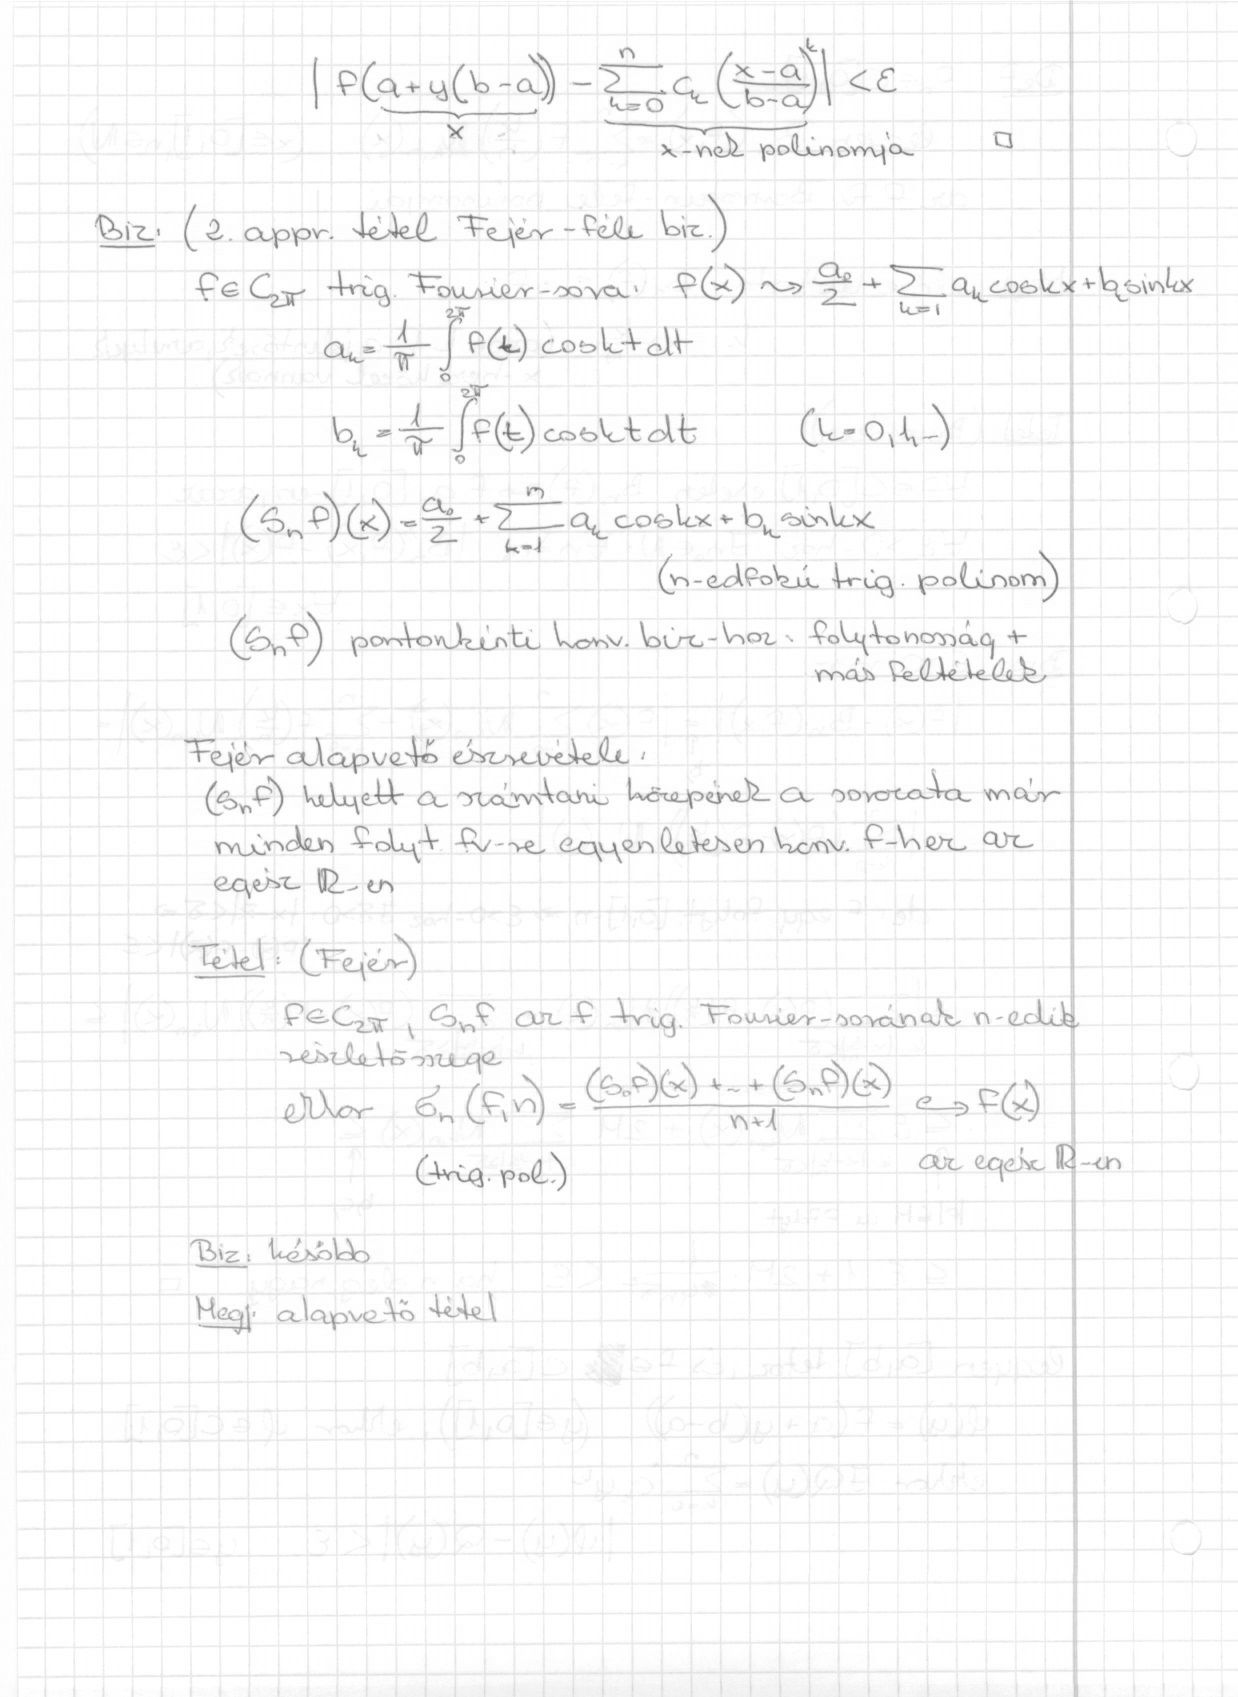 | f(a+y(b-a)) - ∑_{k=0}^{n} c_k ((x-a)/(b-a))^k | < ε
x x-nek polinomja □
Biz: (2. appr. tétel Fejér-féle biz.)
f∈C_{2π} trig. Fourier-sora: f(x) ⇝ a_0/2 + ∑_{k=1} a_k cos kx + b_k sin kx
a_k = 1/π ∫_0^{2π} f(t) cos kt dt
b_k = 1/π ∫_0^{2π} f(t) cos kt dt (k=0,1,...)
(S_n f)(x) = a_0/2 + ∑_{k=1}^{n} a_k cos kx + b_k sin kx
(n-edfokú trig. polinom)
(S_n f) pontonkénti konv. biz-hoz: folytonosság +
más feltételek
Fejér alapvető észrevétele:
(S_n f) helyett a számtani közepének a sorozata már
minden folyt. fv-re egyenletesen konv. f-hez az
egész ℝ-en
Tétel: (Fejér)
f∈C_{2π}, S_n f az f trig. Fourier-sorának n-edik
részletösszege
ekkor σ_n(f,n) = ((S_0 f)(x) + ... + (S_n f)(x))/(n+1) ⇝ f(x)
(trig. pol.) az egész ℝ-en
Biz: később
Megj: alapvető tétel